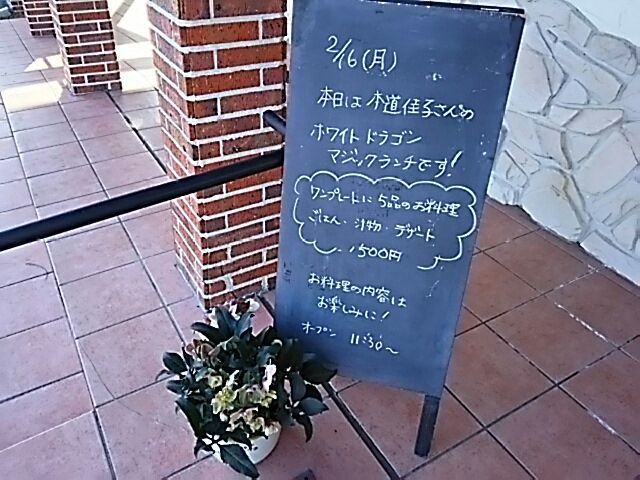 2/16(月)
本日は 木道佳子さんの
ホワイトドラゴン
マジックランチです!
ワンプレートに 5品のお料理
ごはん・汁物・デザート
1500円
お料理の内容は
お楽しみに!
オープン 11:30〜